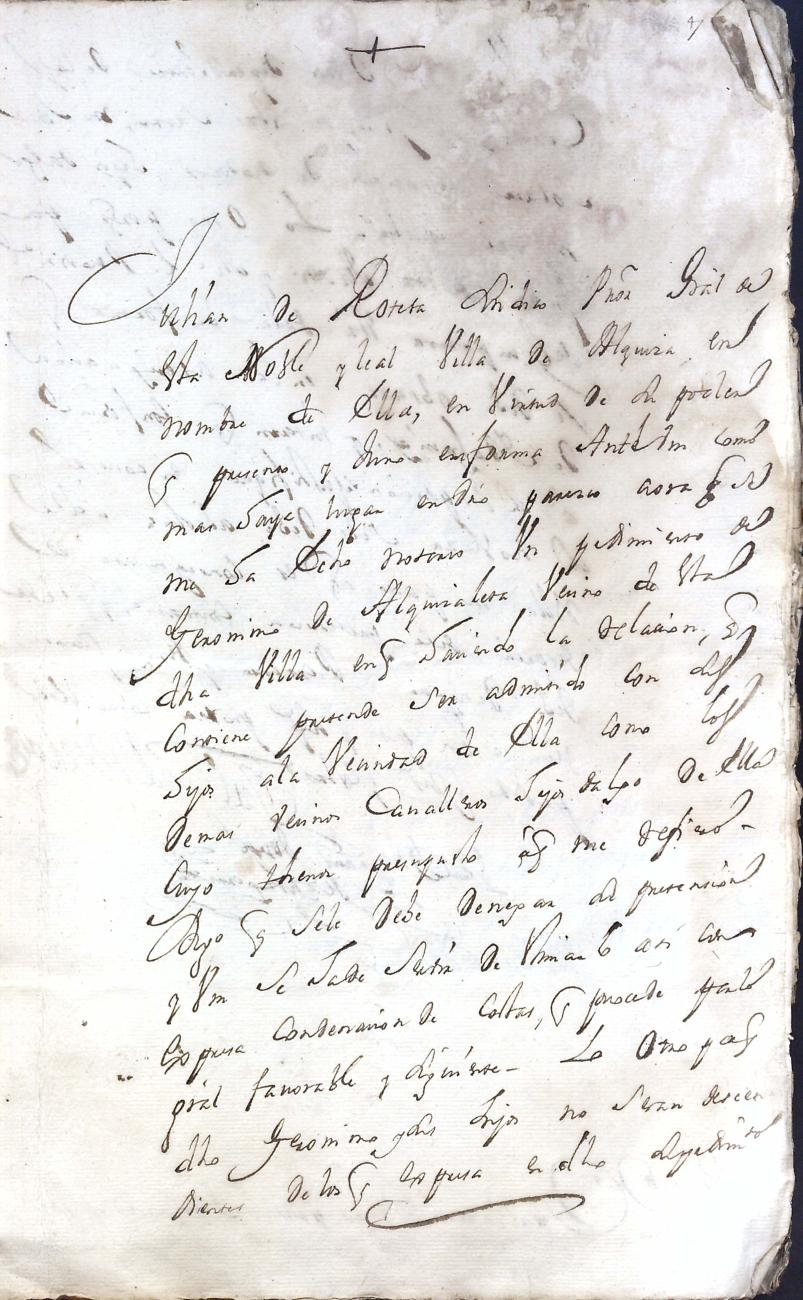 +
Julian de Roteta Sindico Pror Gral de
esta Noble y leal Villa de Alquiza en
nombre de ella, en Virtud de su poder
q presento y Juro en forma Ante Vm como
mas haya lugar en dro parezco aora q se
me ha hecho notorio Un pedimiento de
Geronimo de Alquizalete Vecino de esta
dha Villa en q haciendo la relacion, q
contiene pretende ser admitido con sus
hijos ala Vecindad de ella como los
demas Vecinos Cavalleros hijos dalgo de ella
Cuyo thenor presupuesto a q me refiero -
Digo q sele debe denegar su pretension
y Vm se ha de servir de asi con
expresa Condenacion de Costas, q procede por lo
gral favorable y siguiente - Lo otro por q
dho Geronimo y sus hijos no seran descen
dientes de los q expresa en dho su pedimto